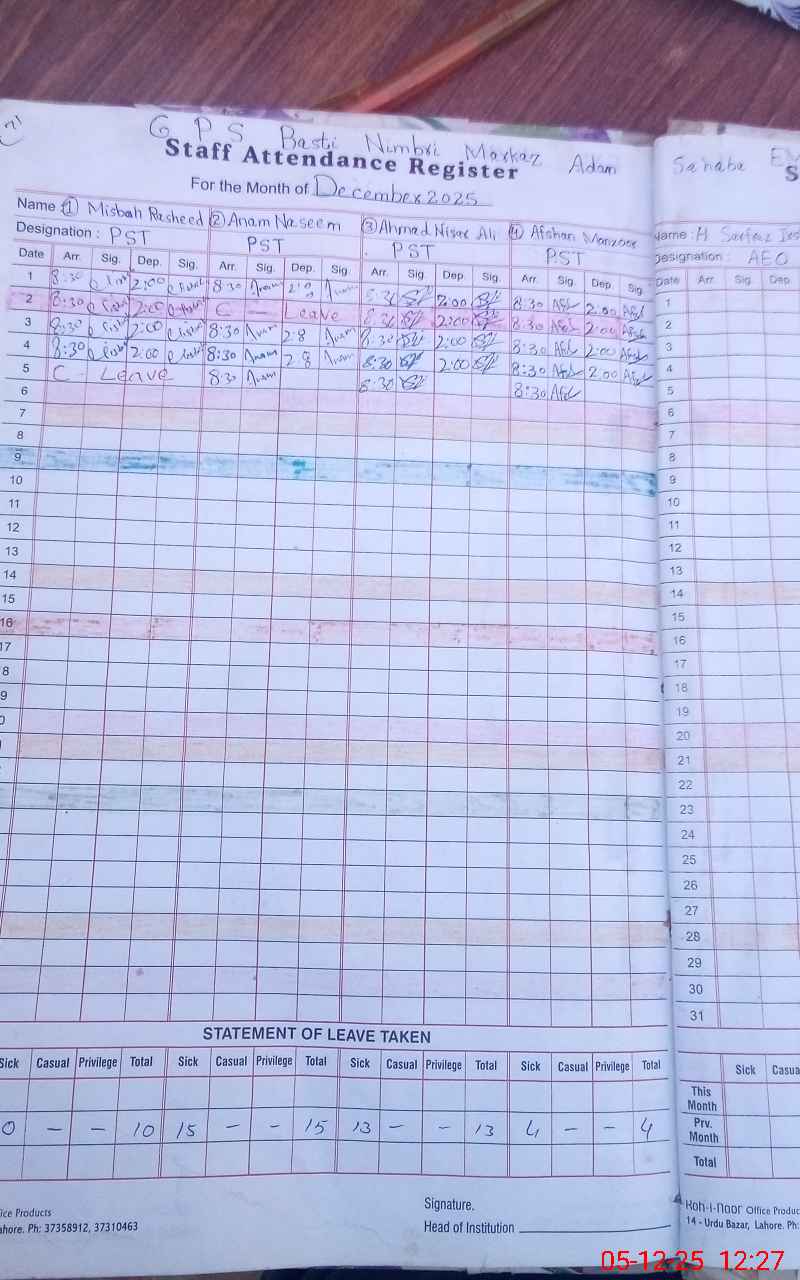 G P S Basti Nimbri Markaz Adam Sahaba
Staff Attendance Register
For the Month of December 2025
Name ① Misbah Rasheed ② Anam Naseem ③ Ahmad Nisar Ali ④ Afshan Manzoor Name : H Sarfraz
Designation : PST PST PST PST Designation : AEO
Date Arr. Sig. Dep. Sig. Arr. Sig. Dep. Sig. Arr. Sig. Dep. Sig. Arr. Sig. Dep. Sig. Date Arr. Sig. Dep.
1 8:30 2:00 8:30 Anam Anam 8:30 2:00 8:30 Afsh 2:00 Afsh 1
2 8:30 2:00 C - Leave 8:30 2:00 8:30 Afsh 2:00 Afsh 2
3 8:30 2:00 8:30 Anam 2:8 Anam 8:30 2:00 8:30 Afsh 2:00 Afsh 3
4 8:30 2:00 8:30 Anam 2:8 Anam 8:30 2:00 8:30 Afsh 2:00 Afsh 4
5 C - Leave 8:30 Anam 8:30 8:30 Afsh 5
6 6
7 7
8 8
9 9
10 10
11 11
12 12
13 13
14 14
15 15
16 16
17 17
8 18
9 19
0 20
21
22
23
24
25
26
27
28
29
30
31
STATEMENT OF LEAVE TAKEN
Sick Casual Privilege Total Sick Casual Privilege Total Sick Casual Privilege Total Sick Casual Privilege Total Sick Casua
This Month
0 - - 10 15 - - 15 13 - - 13 4 - - 4 Prv. Month
Total
ice Products Signature. Koh-i-noor Office Produc
ahore. Ph: 37358912, 37310463 Head of Institution 14 - Urdu Bazar, Lahore. Ph:
05-12-25 12:27